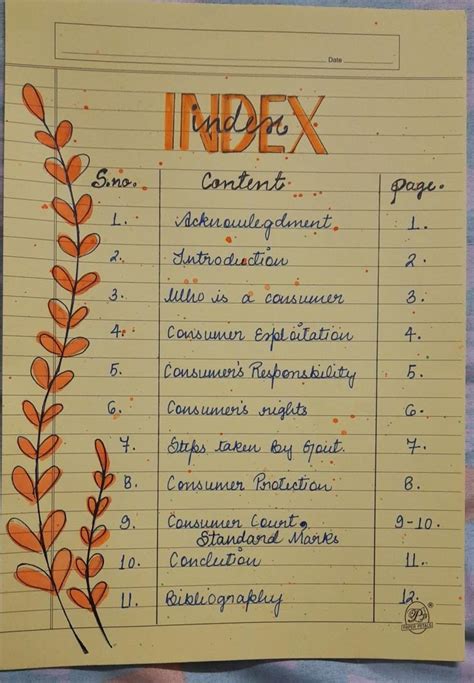 Date
INDEX
index
S.no. Content page.
1. Acknowlegdment. 1.
2. Introduction 2.
3. Who is a consumer 3.
4. Consumer Exploitation 4.
5. Consumer's Responsibility 5.
6. Consumer's rights 6.
7. Steps taken by Govt. 7.
8. Consumer Protection 8.
9. Consumer Court, 9-10.
Standard Marks
10. Conclution 11.
11. Bibliography 12.
PAPER PETALS